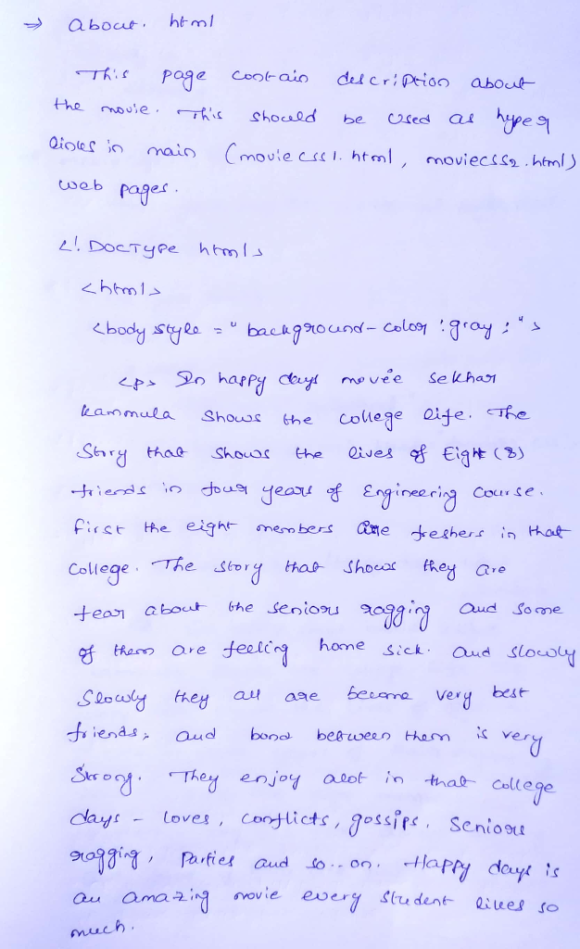 ⇒ about. html
This page contain description about
the movie. This should be used as hyper
links in main (moviecss1.html, moviecss2.html)
web pages.
<!DOCTYPE html>
<html>
<body style = "background-color:gray;">
<p> In happy days movie sekhar
kammula shows the college life. The
Story that shows the lives of Eight (8)
friends in four years of Engineering course.
first the eight members are freshers in that
college. The story that shows they are
fear about the seniors ragging and some
of them are feeling home sick. and slowly
slowly they all are become very best
friends, and bond between them is very
Strong. They enjoy alot in that college
days - loves, conflicts, gossips, seniors
ragging, parties and so..on. Happy days is
an amazing movie every student likes so
much.